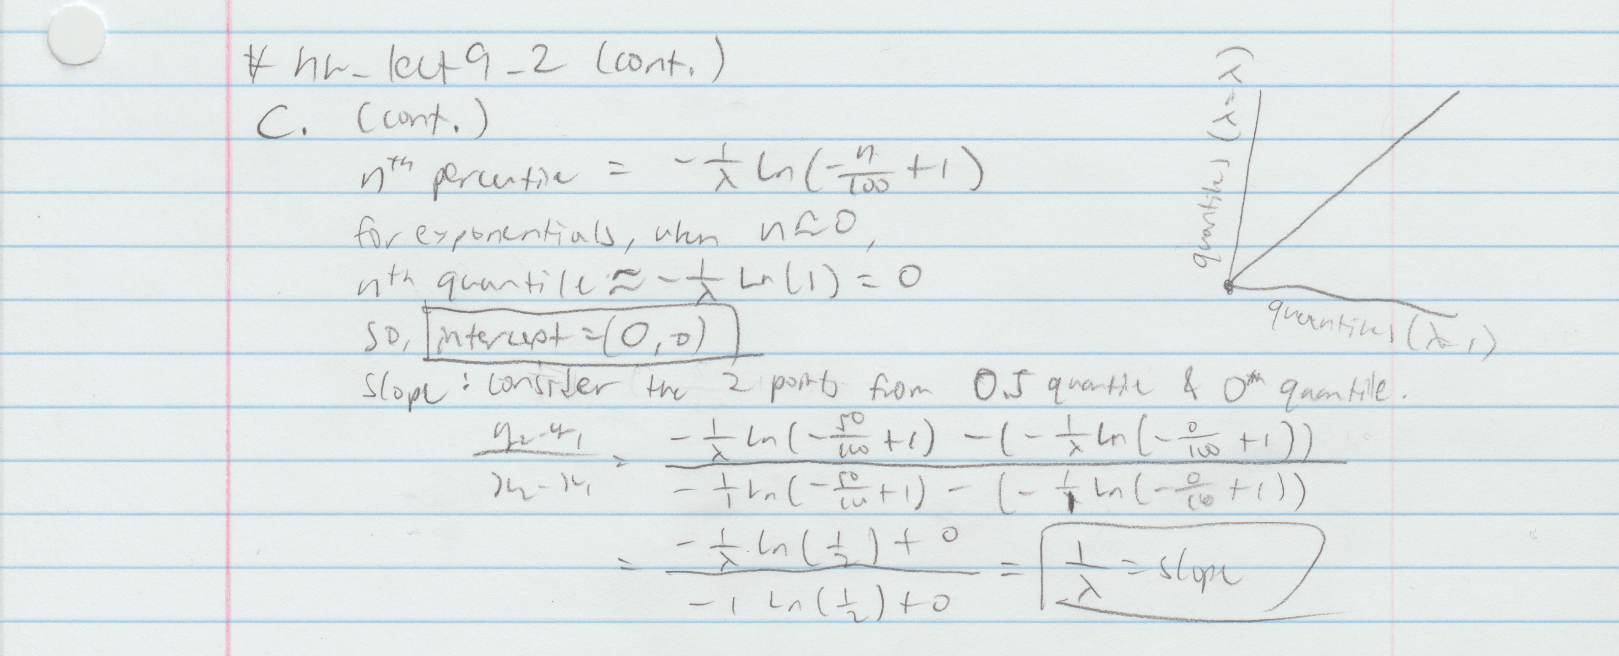 # hw_lect9_2 (cont.)
C. (cont.)
nth percentile = -1/λ Ln(-n/100 + 1)
for exponentials, when n≈0,
nth quantile ≈ -1/λ Ln(1) = 0
so, intercept = (0,0)
slope: consider the 2 points from 0.5 quantile & 0th quantile.
(y₂-y₁)/(x₂-x₁) = (-1/λ Ln(-50/100 + 1) - (-1/λ Ln(-0/100 + 1)))/(-1/1 Ln(-50/100 + 1) - (-1/1 Ln(-0/100 + 1)))
= (-1/λ Ln(1/2) + 0)/(-1 Ln(1/2) + 0) = 1/λ = slope
quantiles (λ=λ)
quantiles (λ=1)